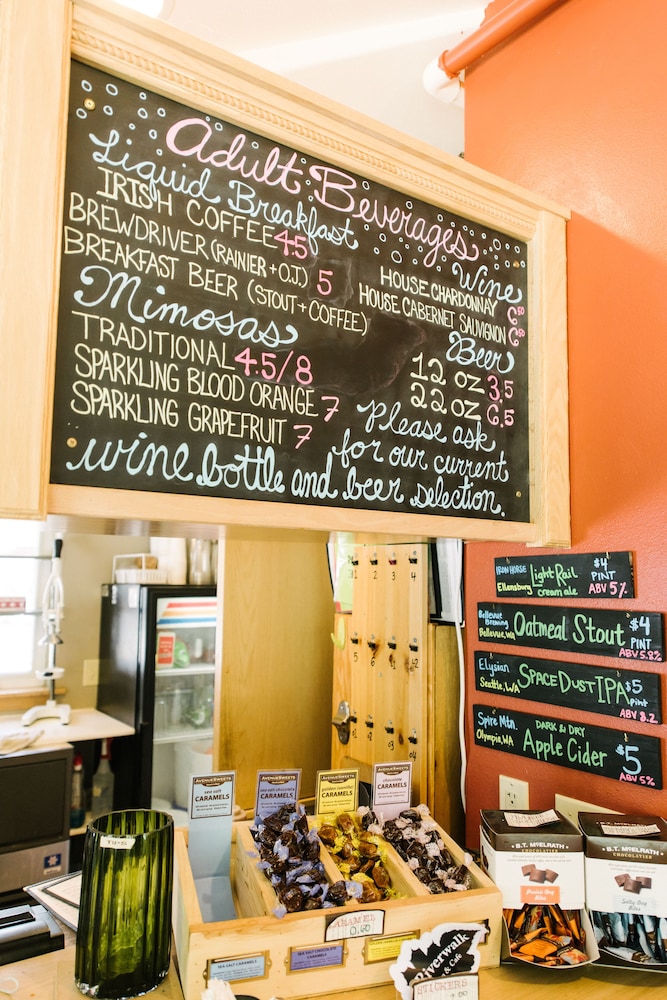 Adult Beverages
Liquid Breakfast
IRISH COFFEE 4.5
BREWDRIVER (RAINIER + O.J.) 5
BREAKFAST BEER (STOUT + COFFEE)
Mimosas
TRADITIONAL 4.5/8
SPARKLING BLOOD ORANGE 7
SPARKLING GRAPEFRUIT 7
Wine
HOUSE CHARDONNAY 6.50
HOUSE CABERNET SAUVIGNON 6.50
Beer
12 OZ 3.5
22 OZ 6.5
Please ask
for our current
wine bottle and beer selection.
IRON HORSE
Ellensburg
Light Rail
cream ale
$4
PINT
ABV 5%
Bellevue
Brewing
Bellevue, WA
Oatmeal Stout
$4
PINT
ABV 5.8%
Elysian
Seattle, WA
SPACE DUST IPA
$5
pint
ABV 8.2
Spire Mtn.
Olympia, WA
DARK & DRY
Apple Cider
$5
ABV 5%
1
2
3
4
5
6
AVENUESWEETS
sea salt
CARAMELS
AVENUESWEETS
CARAMELS
AVENUESWEETS
golden
CARAMELS
AVENUESWEETS
chocolate
CARAMELS
CARAMEL
0.60
SEA SALT CARAMELS
B.T. McELRATH
CHOCOLATIER
B.T. McELRATH
CHOCOLATIER
Salty Dog
Riverwalk
& Cafe
STICKERS